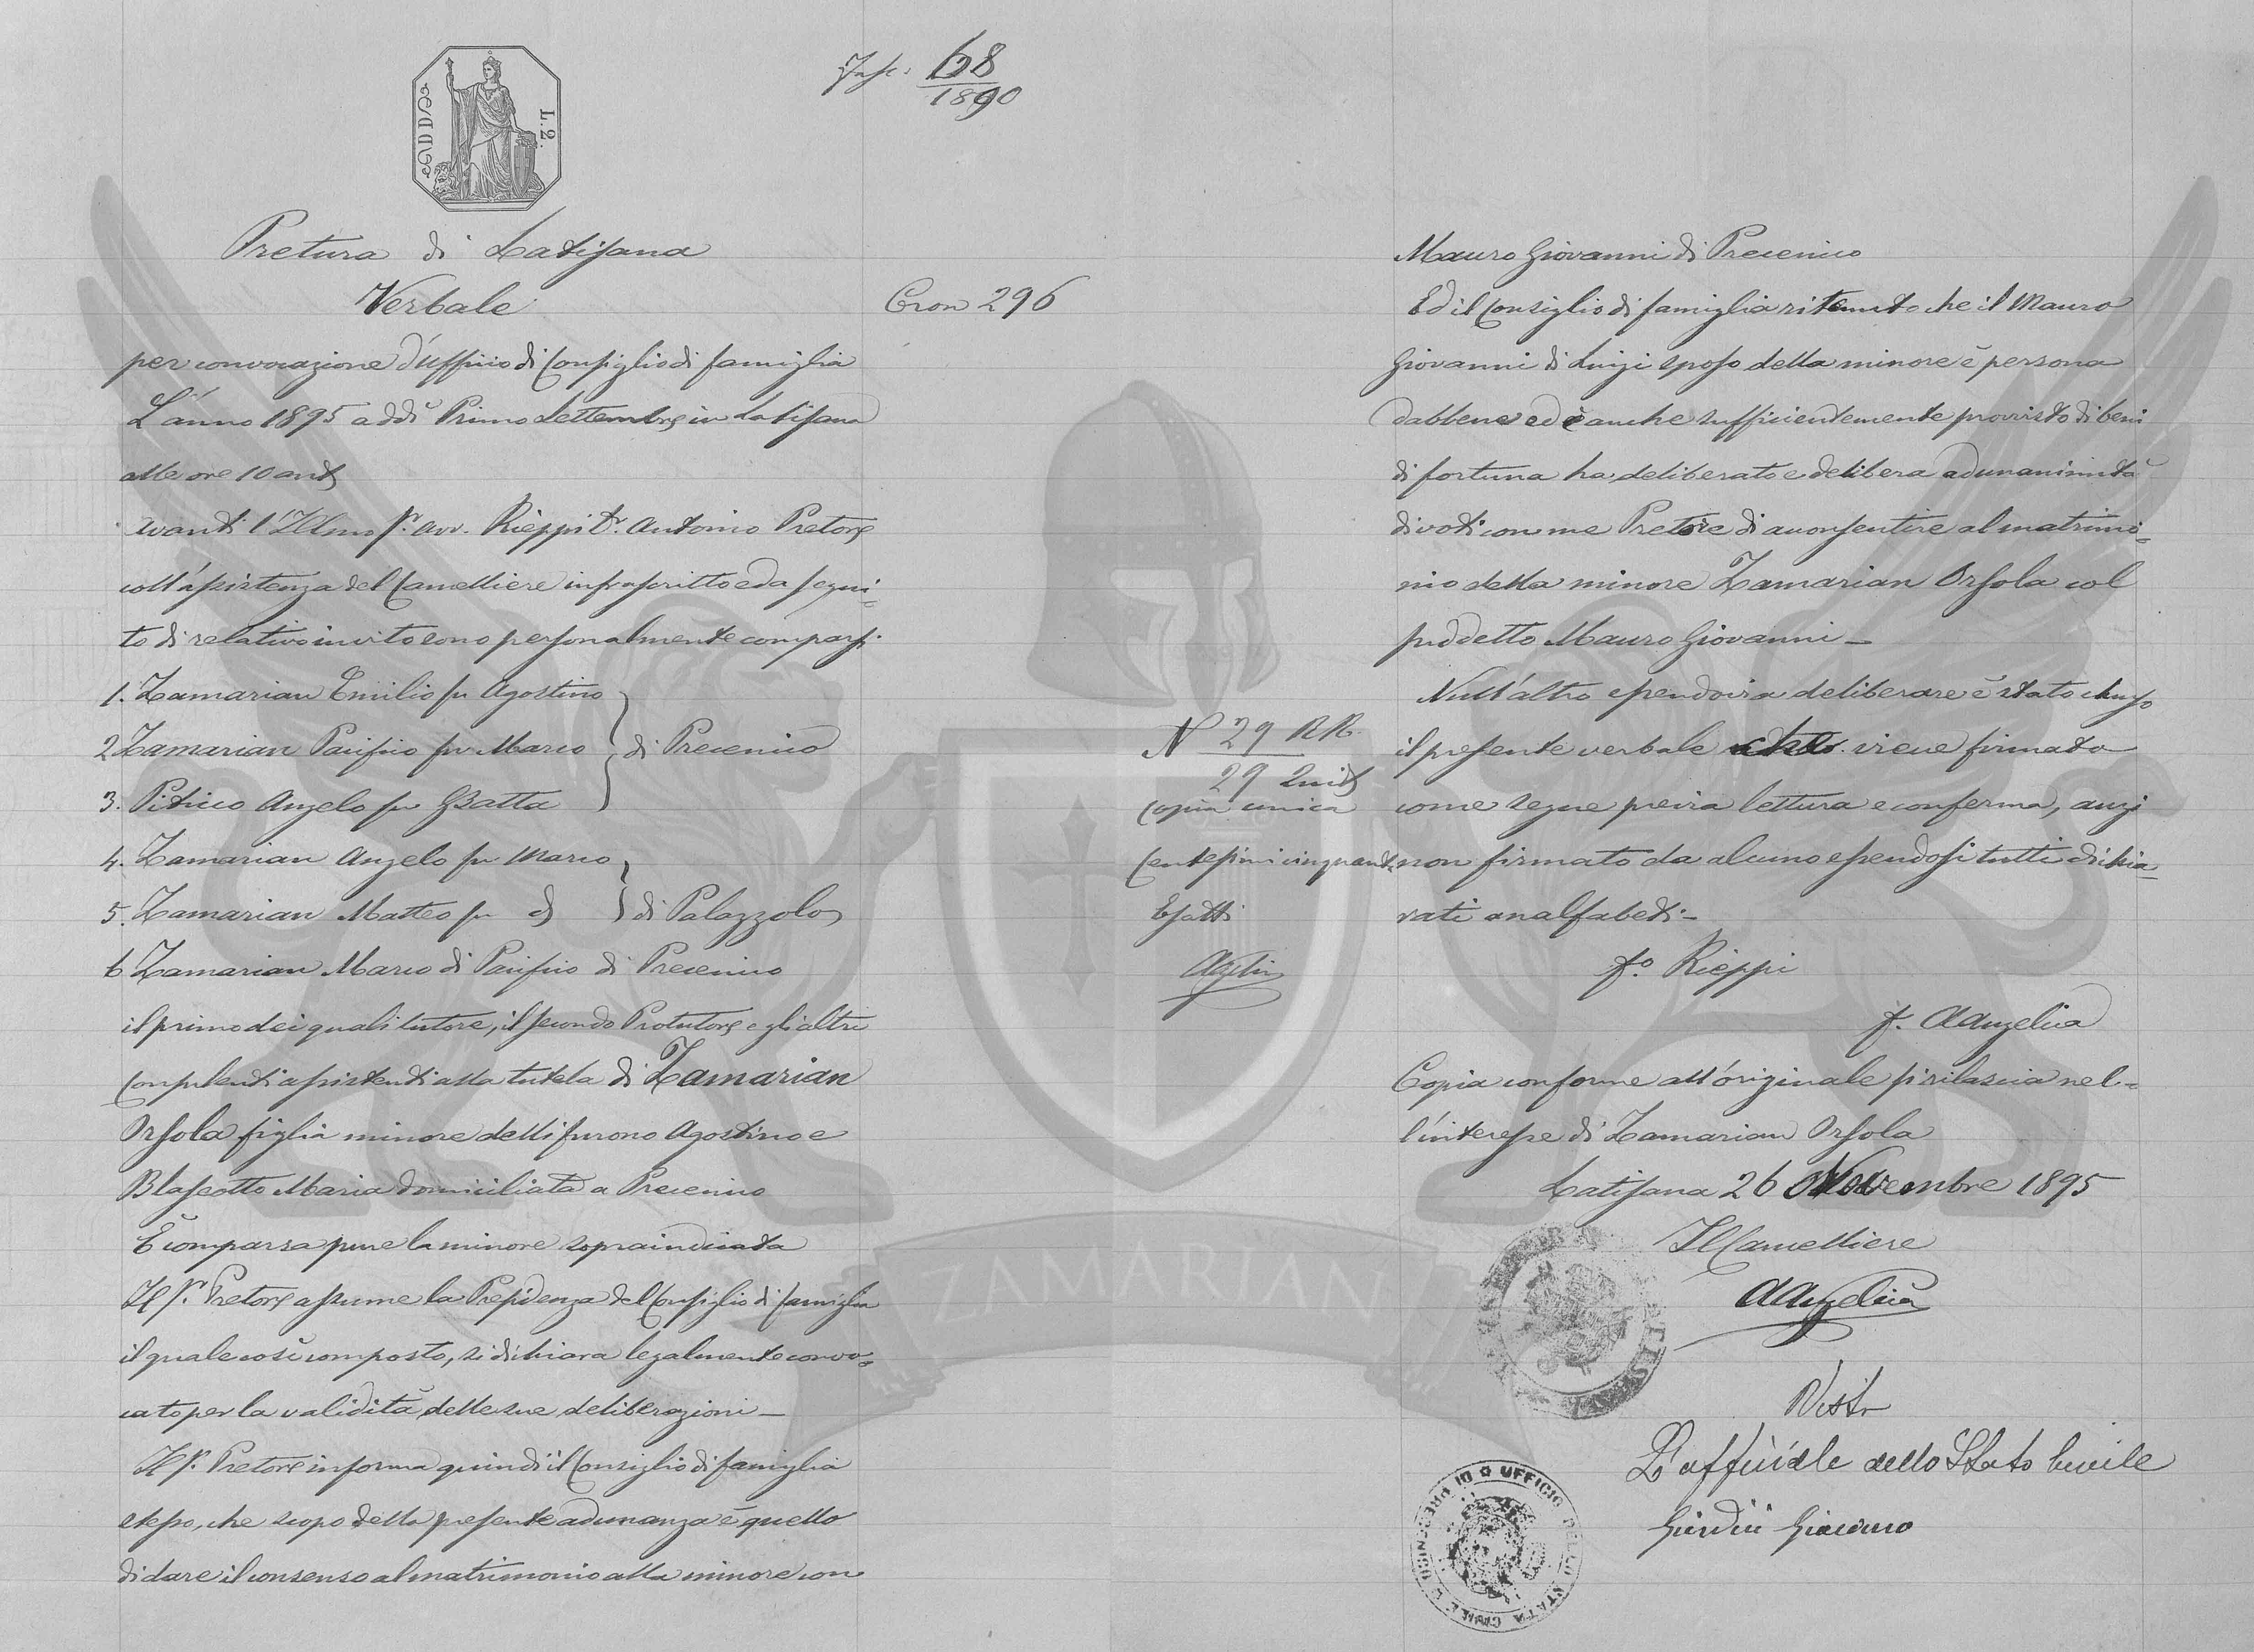 68
1890
L. 2.
Pretura di Latisana
Verbale
Cron 296
per convocazione d'ufficio di Consiglio di famiglia
L'anno 1895 addì Primo Settembre in Latisana
alle ore 10 ant
avanti l'Illmo Sr. avv. Rieppi Dr. Antonio Pretore
coll'assistenza del Cancelliere infrascritto ed a segui=
to di relativo invito sono personalmente comparsi.
1. Zamarian Emilio fu Agostino
2 Zamarian Pacifico fu Marco di Precenico
3. Pitticco Angelo fu GBatta
4. Zamarian Angelo fu Marco
5. Zamarian Matteo fu di Palazzolo
6 Zamarian Marco di Pacifico di Precenico
il primo dei quali tutore, il secondo Protutore e gli altri
Consulenti assistenti alla tutela di Zamarian
Orsola figlia minore delli furono Agostino e
Blaseotto Maria domiciliata a Precenico
È comparsa pure la minore sopraindicata
Il Sr. Pretore assume la Presidenza del Consiglio di famiglia
il quale così composto, si dichiara legalmente convo=
cato per la validità delle sue deliberazioni _
Il Sr. Pretore informa quindi il Consiglio di famiglia
stesso, che scopo della presente adunanza è quello
di dare il consenso al matrimonio alla minore con
Mauro Giovanni di Precenico
Ed il Consiglio di famiglia ritenuto che il Mauro
Giovanni di Luigi sposo della minore è persona
dabbene ed è anche sufficientemente provvisto di beni
di fortuna ha deliberato e delibera ad unanimità
di voti con me Pretore di acconsentire al matrimo=
nio della minore Zamarian Orsola col
suddetto Mauro Giovanni _
Null'altro essendovi a deliberare è stato chiuso
il presente verbale che viene firmato
come segue previa lettura e conferma, anzi
non firmato da alcuno essendosi tutti dichia=
rati analfabeti _
N 29 RR.
29
copia unica
Centesimi cinquanta
Esatti
fo. Rieppi
f. Adangelica
Copia conforme all'originale si rilascia nel=
l'interesse di Zamarian Orsola
Latisana 26 Novembre 1895
Il Cancelliere
Visto
L'uffiziale dello Stato Civile
Giacomo
UFFICIO DELLO STATO CIVILE DI PRECENICO
ZAMARIAN